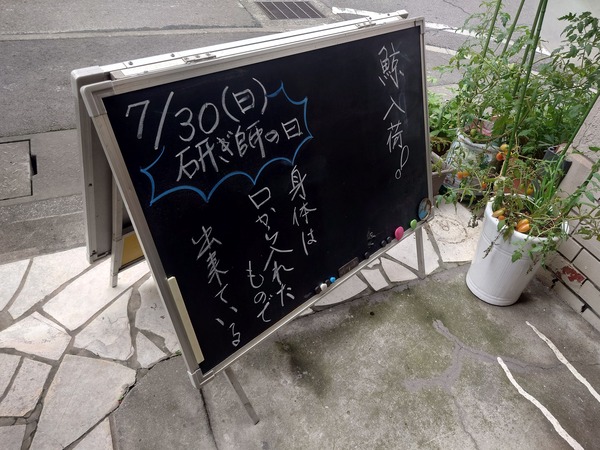 鯨入荷。
7/30(日)
研ぎ師の日
身体は
口から入れた
もので
出来ている